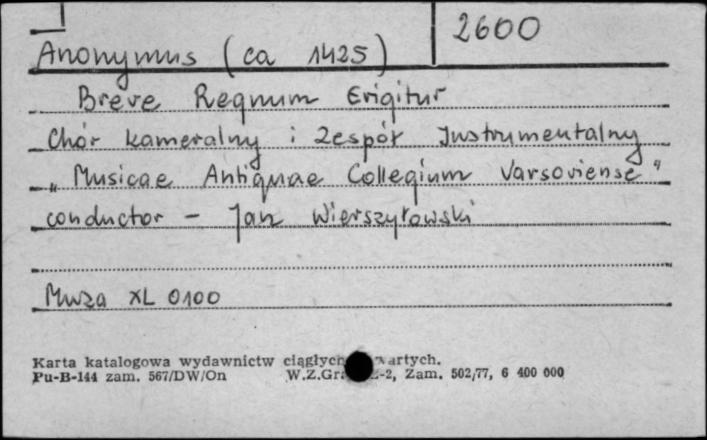 2600
Anonymus (ca 1425)
Breve Regnum Erigitur
Chór kameralny i Zespół Instrumentalny
„Musicae Antiquae Collegium Varsoviense"
conductor - Jan Wierszyłowski
Muza XL 0100
Karta katalogowa wydawnictw ciągłych
Pu-B-144 zam. 567/DW/On W.Z.Gr -2, Zam. 502/77, 6 400 000